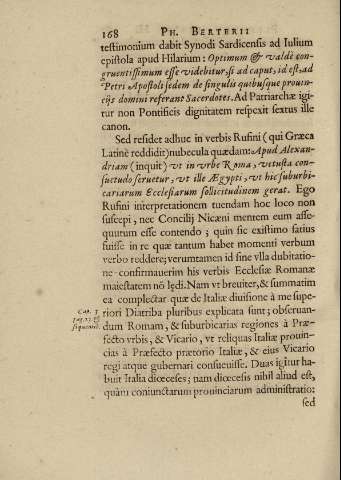 168 PH. BERTERII
testimonium dabit Synodi Sardicensis ad Iulium
epistola apud Hilarium: Optimum & valdè con-
gruentissimum esse videbitur, si ad caput, id est, ad
Petri Apostoli sedem de singulis quibusque prouin-
cijs domini referant Sacerdotes. Ad Patriarchæ igi-
tur non Pontificis dignitatem respexit sextus ille
canon.
Sed residet adhuc in verbis Rufini (qui Græca
Latinè reddidit) nubecula quædam: Apud Alexan-
driam (inquit) vt in vrbe Roma, vetusta con-
suetudo seruetur, vt ille Ægypti, vt hic suburbi-
cariarum Ecclesiarum sollicitudinem gerat. Ego
Rufini interpretationem tuendam hoc loco non
suscepi, nec Concilij Nicæni mentem eum asse-
quutum esse contendo; quin sic existimo satius
fuisse in re quæ tantum habet momenti verbum
verbo reddere; veruntamen id sine vlla dubitatio-
ne confirmauerim his verbis Ecclesiæ Romanæ
maiestatem nō lędi. Nam vt breuiter, & summatim
ea complectar quæ de Italiæ diuisione à me supe-
Cap. 3 riori Diatriba pluribus explicata sunt; obseruan-
pag. 23. & dum Romam, & suburbicarias regiones à Præ-
sequenti. fecto vrbis, & Vicario, vt reliquas Italiæ prouin-
cias à Præfecto prætorio Italiæ, & eius Vicario
regi atque gubernari consueuisse. Duas igitur ha-
buit Italia diœceses; nam diœcesis nihil aliud est,
quàm coniunctarum prouinciarum administratio:
sed